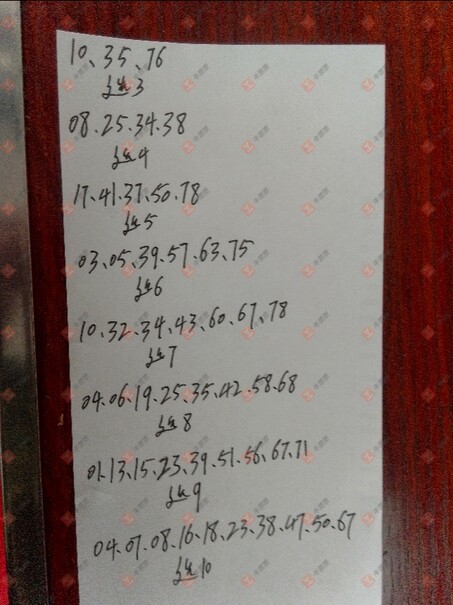 10、35、76
选3
08.25.34.38
选4
17.41.37.50.78
选5
03、05、39、57、63、75
选6
10、32、34、43、60、67、78
选7
04.06.19.25.35.42.58.68
选8
01.13.15.23.39.51.56.67.71
选9
04.07.08.16.18.23.38.47.50.67
选10